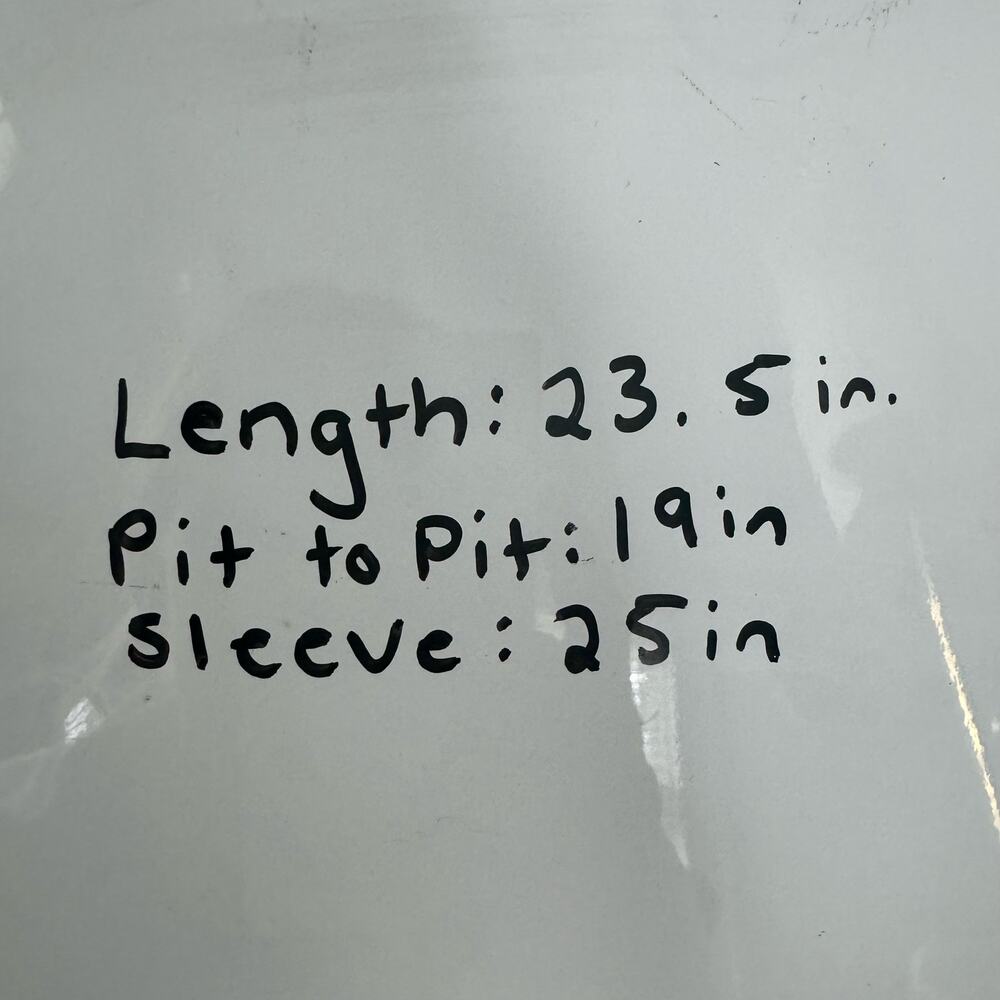 Length: 23.5 in.
Pit to Pit: 19in
Sleeve: 25in